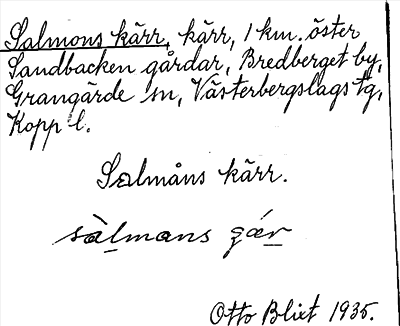 Salmons kärr, kärr, 1 km. öster
Sandbacken gårdar, Bredberget by,
Grangärde sn, Västerbergslags tg,
Kopp l.
Salmåns kärr.
sàlmans çǽr
Otto Blixt 1935.